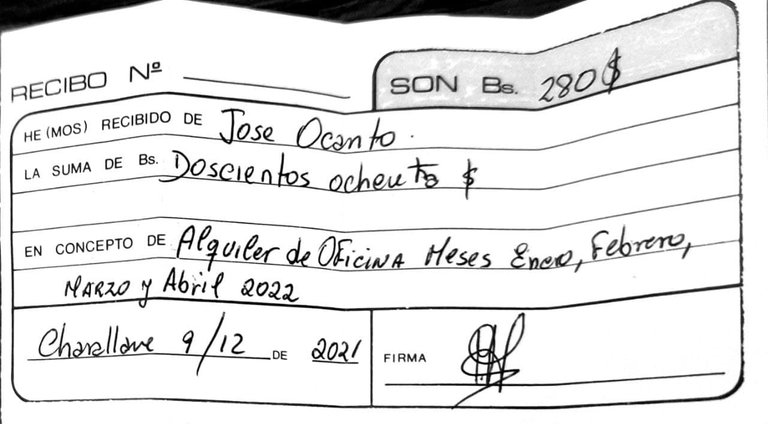 RECIBO Nº
SON Bs. 280$
HE (MOS) RECIBIDO DE Jose Ocanto.
LA SUMA DE Bs. Doscientos ochenta $
EN CONCEPTO DE Alquiler de Oficina Meses Enero, Febrero,
Marzo y Abril 2022
Charallave 9/12 DE 2021
FIRMA